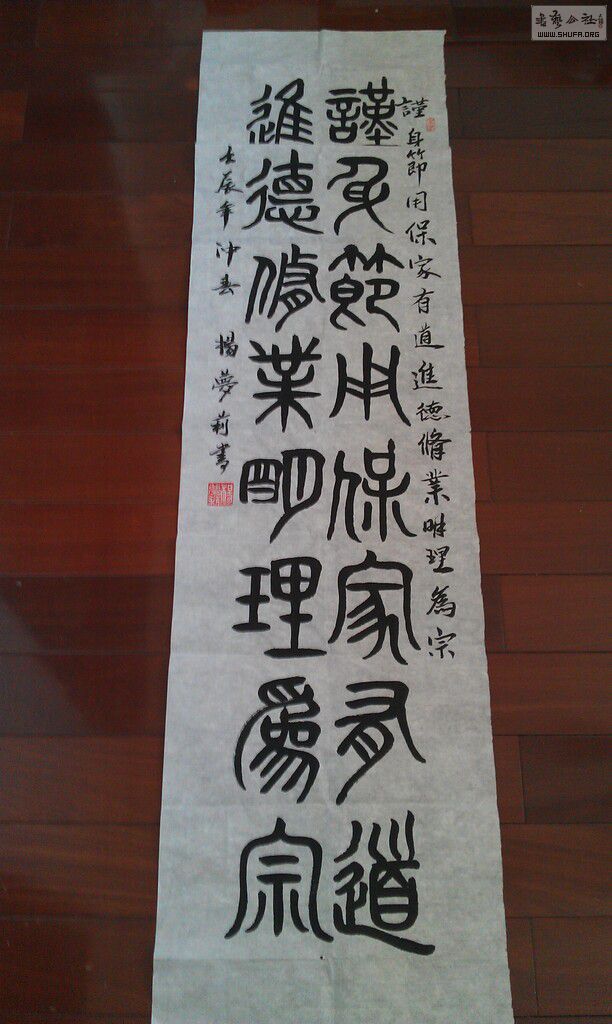 謹身節用保家有道進德脩業明理為宗
謹身節用保家有道
進德脩業明理爲宗
壬辰年仲春 楊夢莉書
書藝公社
WWW.SHUFA.ORG